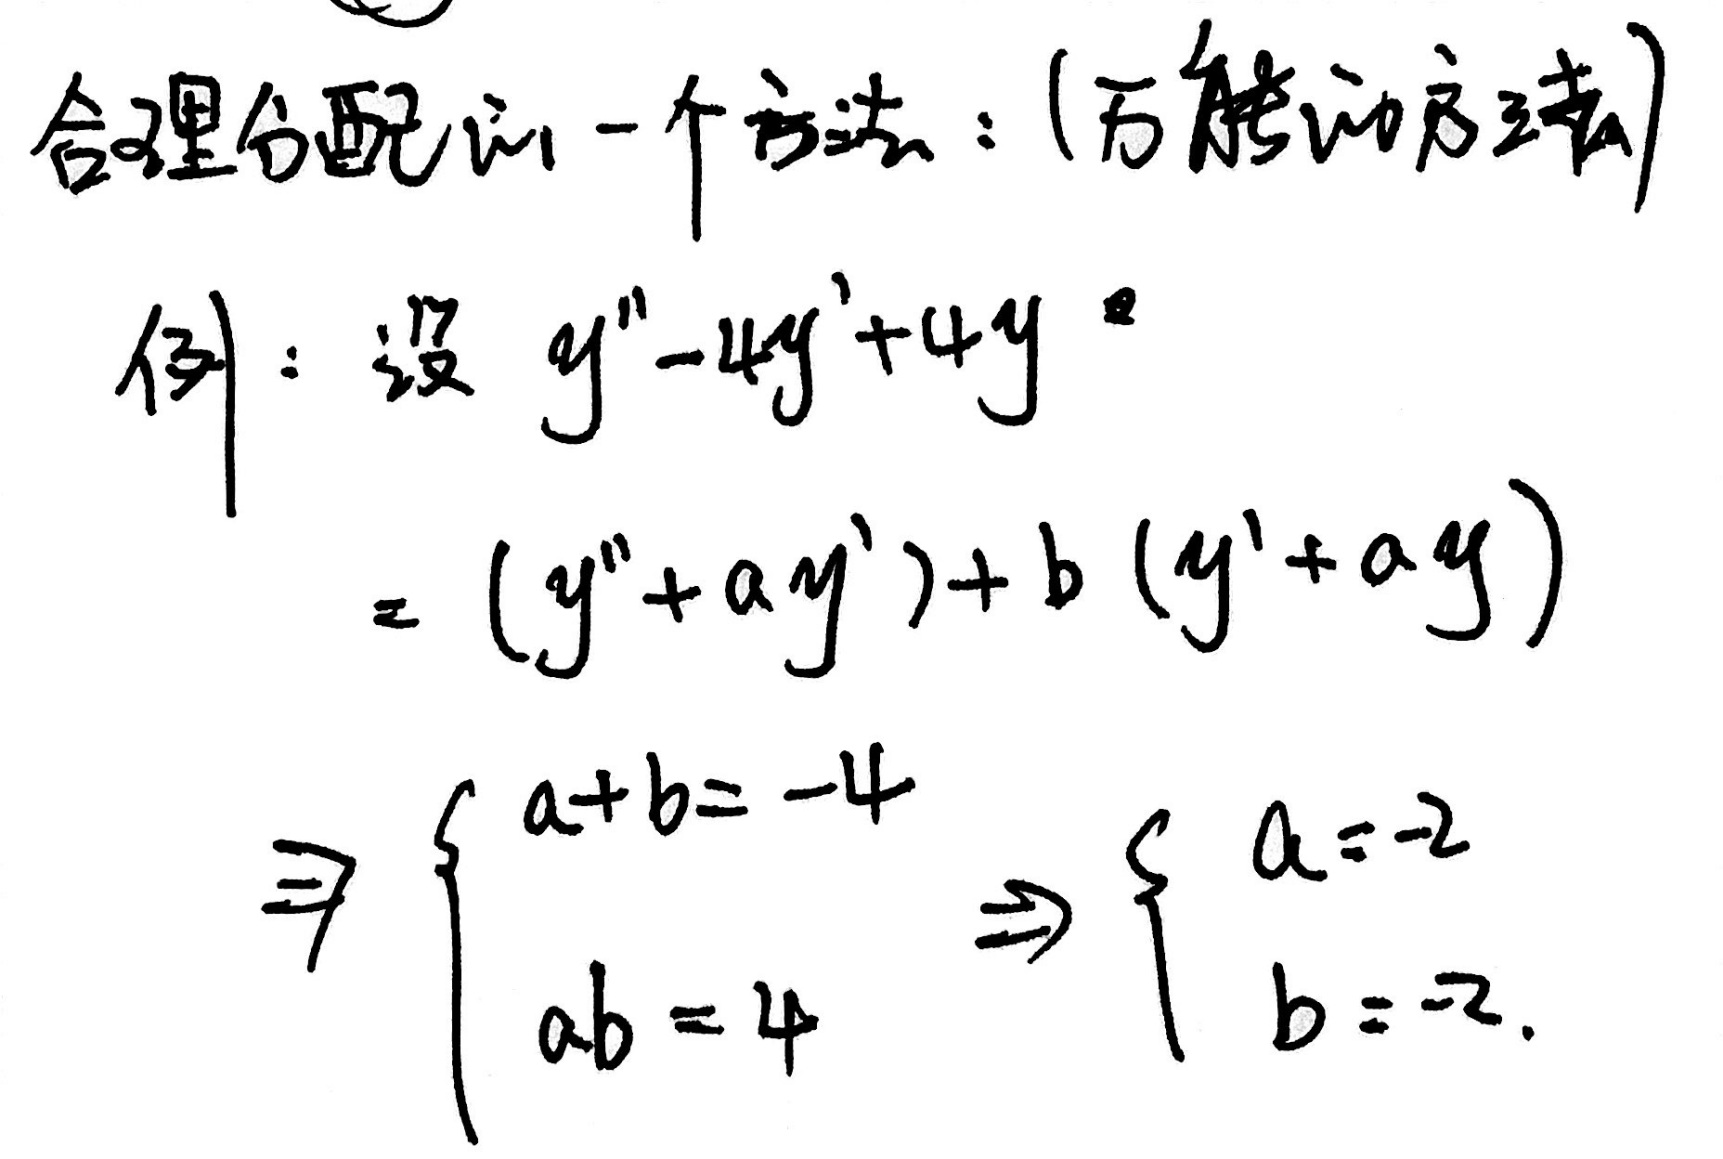 合理分配的一个方法：（万能的方法）
例：设 y''-4y'+4y
= (y''+ay')+b(y'+ay)
⇒ { a+b=-4 ⇒ { a=-2
ab=4 b=-2.